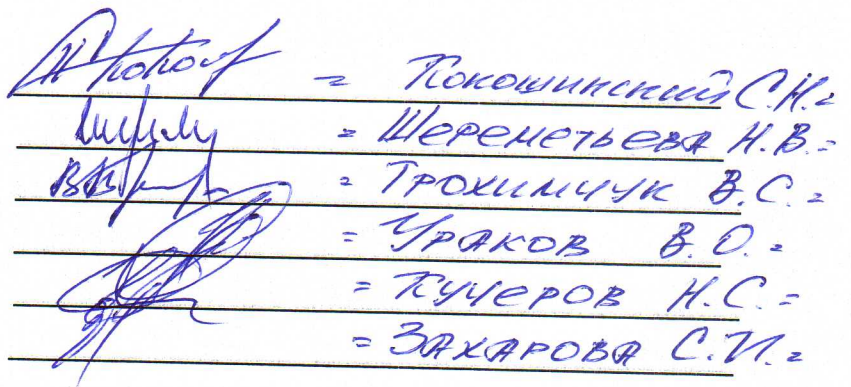 = Кокошинский С.Н. =
= Шереметьева Н.В. =
= Трохимчук В.С. =
= Ураков В.О. =
= Кучеров Н.С. =
= Захарова С.И. =